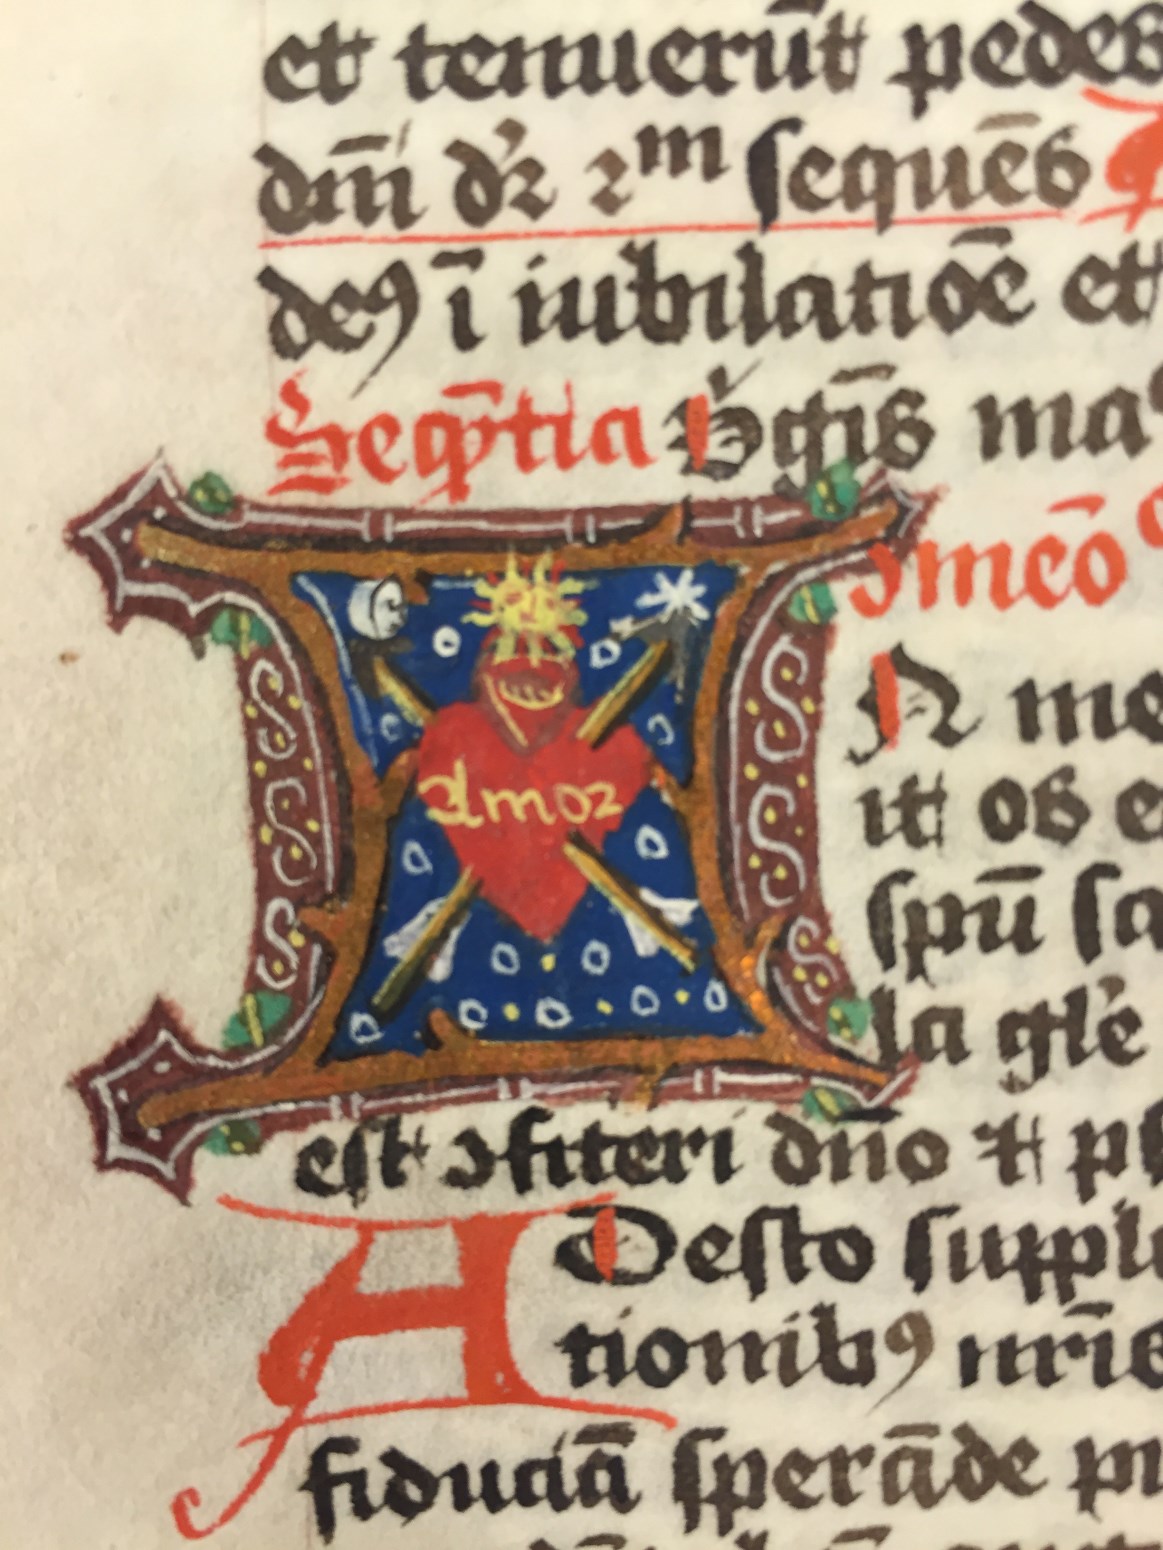 et tenuerūt pedes
dm̄i dr̄ 2m sequēs
deꝰ ī iubilatiōe et
Seqētia Vgīs ma
ōmēō
N me
it os e
spū sa
la gle
Amor
est ꝯfiteri dn̄o et ps
A Desto suppli
tionibꝰ nr̄is
fiduciā sperāde pi